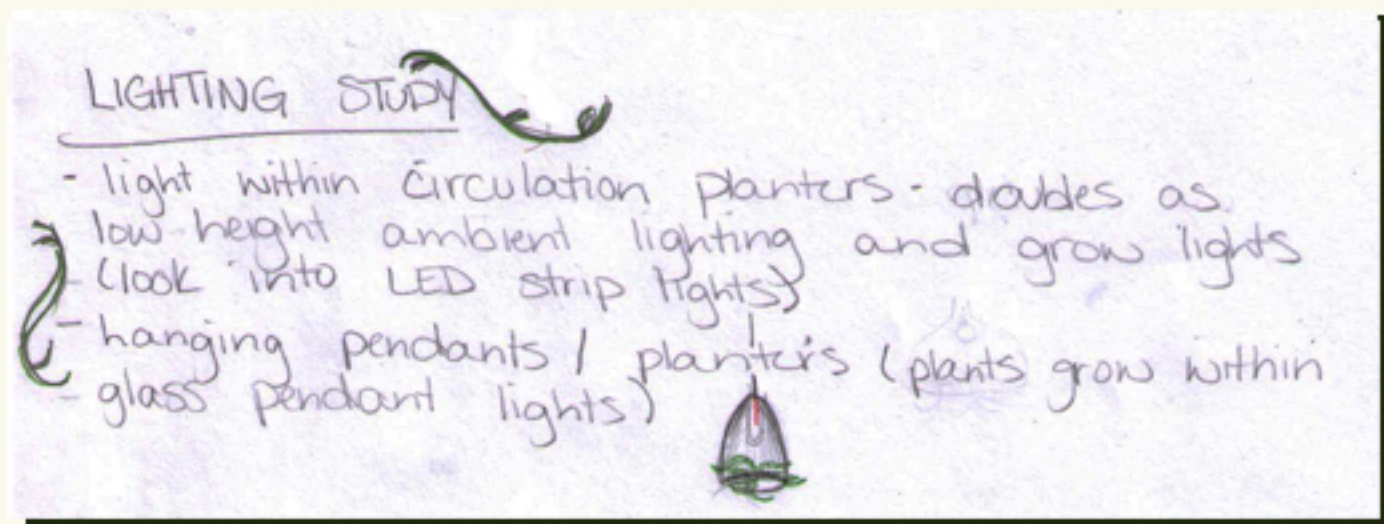 LIGHTING STUDY
- light within circulation planters - doubles as
low height ambient lighting and grow lights
- (look into LED strip lights)
- hanging pendants / planters (plants grow within
- glass pendant lights)